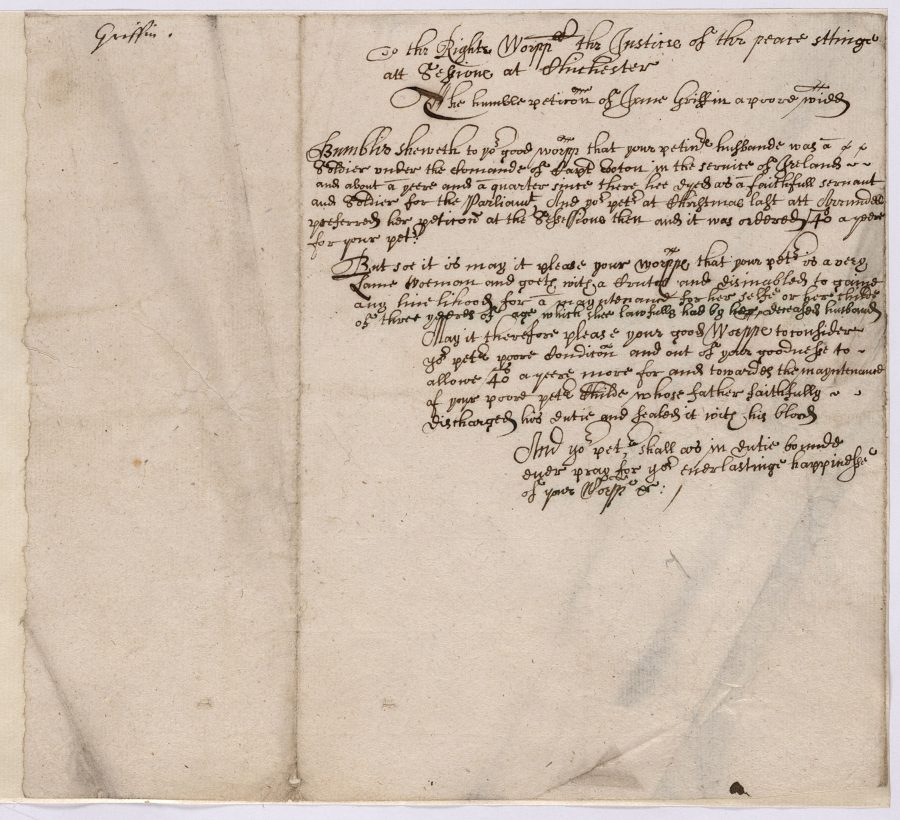 Griffin.
To the Right Worpp:ll the Justices of the peace sittinge
att Sessions at Chichester
The humble peticon of Jane Griffin a poore widd
Humblie sheweth to yor good worpps that your petinr husbande was a
Soldier under the Comande of Capt in the service of Ireland
and about a yeere and a quarter since there hee dyed as a faithfull servant
and Soldier for the Parliamt, And yor petr at Christmas last att Arrundel
preferred her peticon at the Sessions then and it was ordered 40s a yeere
for your petr:
But soe it is may it please your worpps that your petr is a very
Lame Woeman and goeth with a Crutch and dismabled to gaine
any livelihood for a mayntenance for her selfe or her Childe
of three yeeres of age which shee lawfully had by her deceased husband
May it therefore please your good Worpps to consider
yor petrs poore Condicon and out of your goodnesse to
allowe 40s a yeere more for and towardes the mayntenance
of your poore petrs Childe whose father faithfully
discharged his dutie and sealed it with his blood
And yor petr shall as in dutie bounde
ever pray for yor everlastinge happinesse
of your Worpps &c: